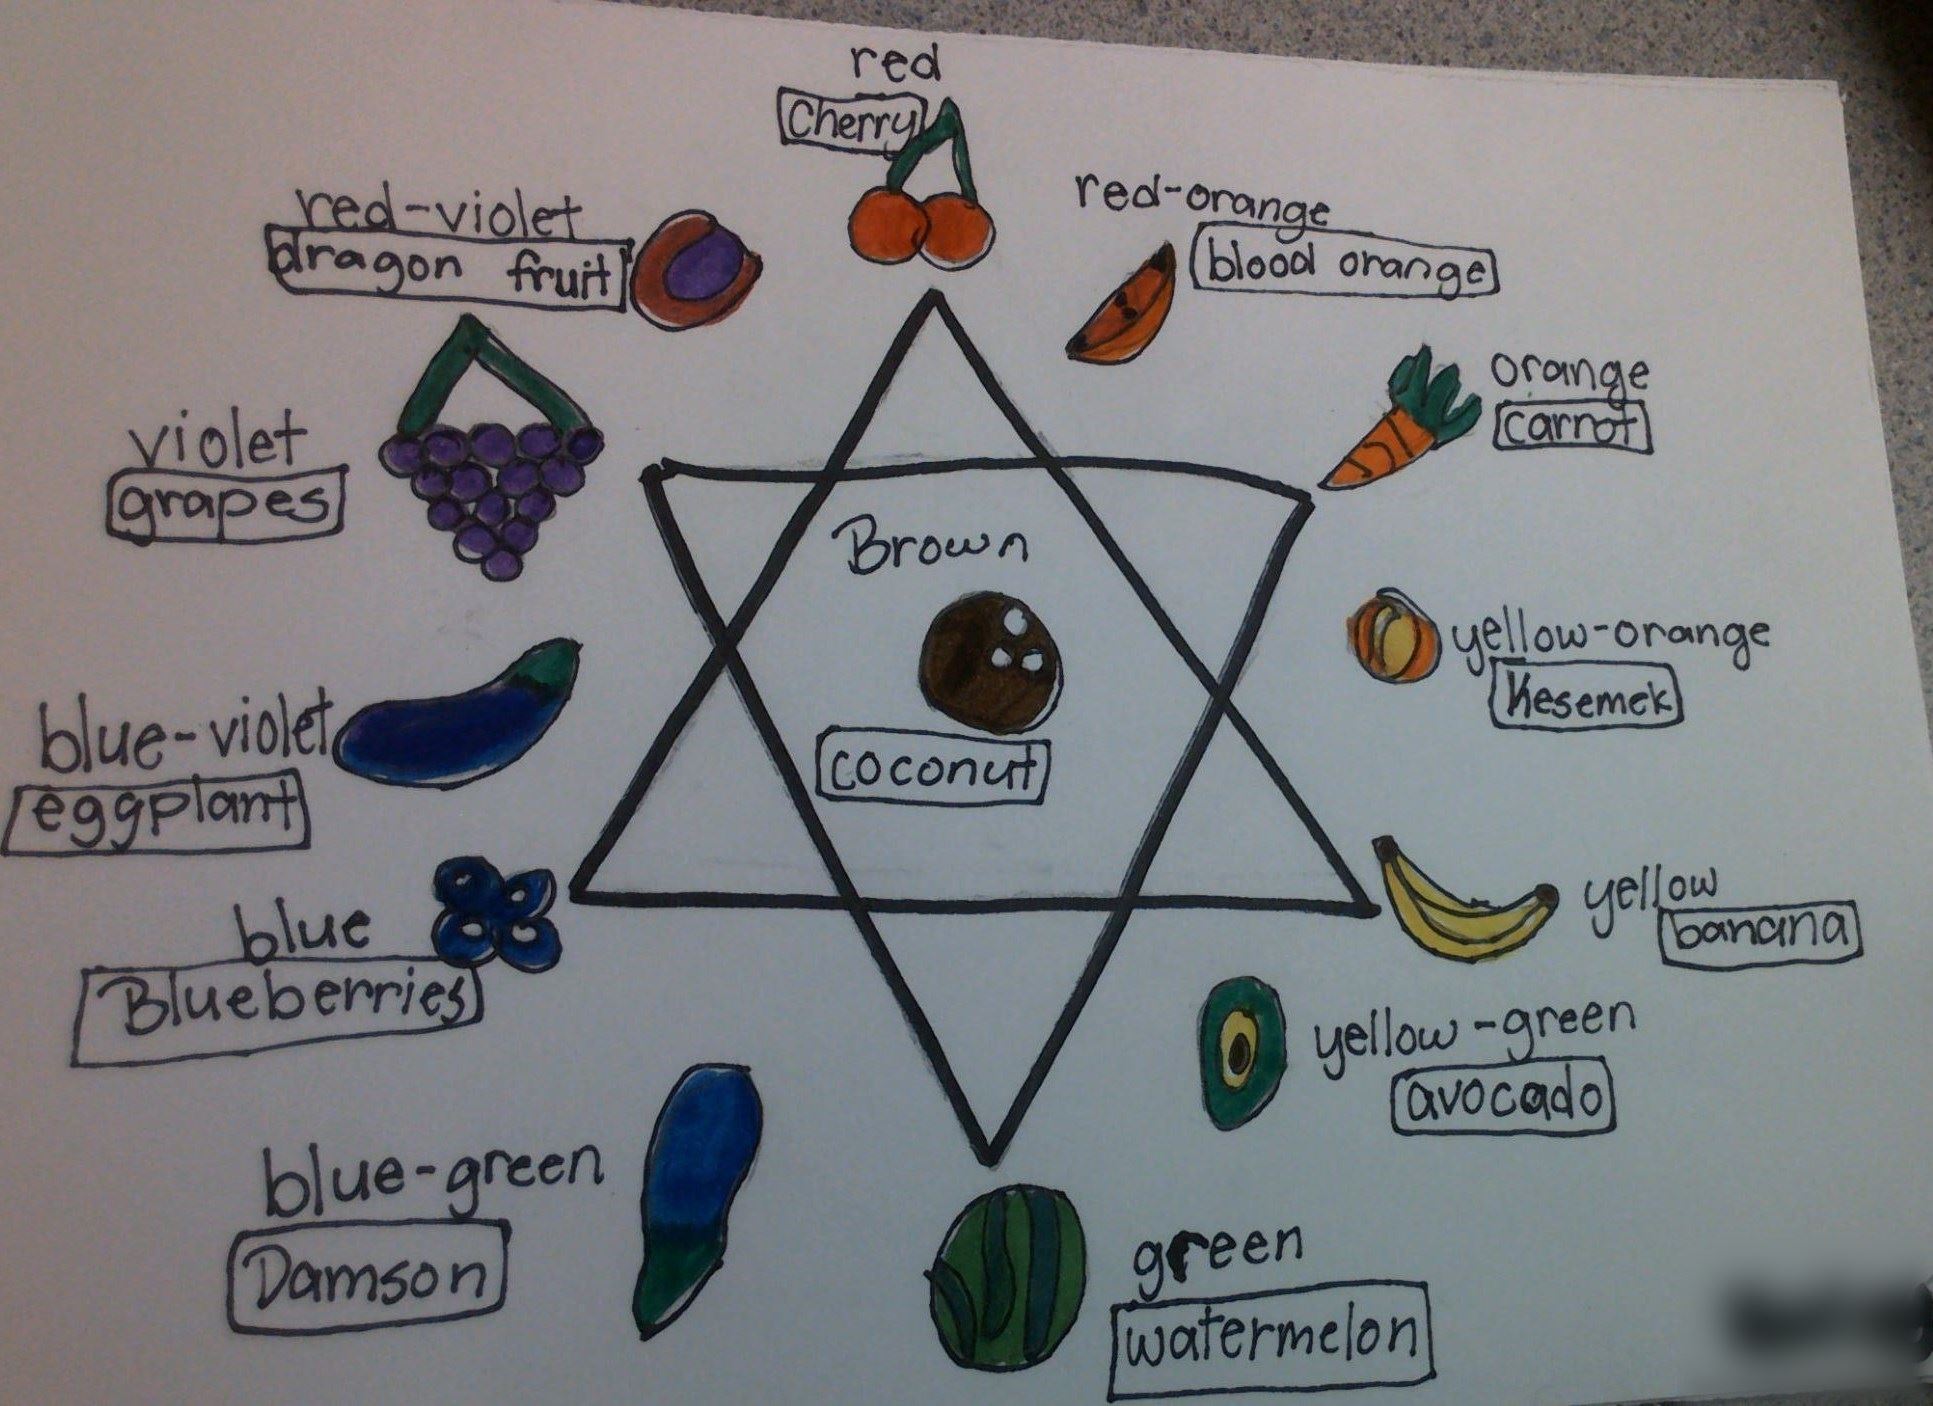 red
Cherry
red-orange
blood orange
orange
carrot
yellow-orange
Kesemek
yellow
banana
yellow-green
avocado
green
watermelon
blue-green
Damson
blue
Blueberries
blue-violet
eggplant
violet
grapes
red-violet
dragon fruit
Brown
coconut